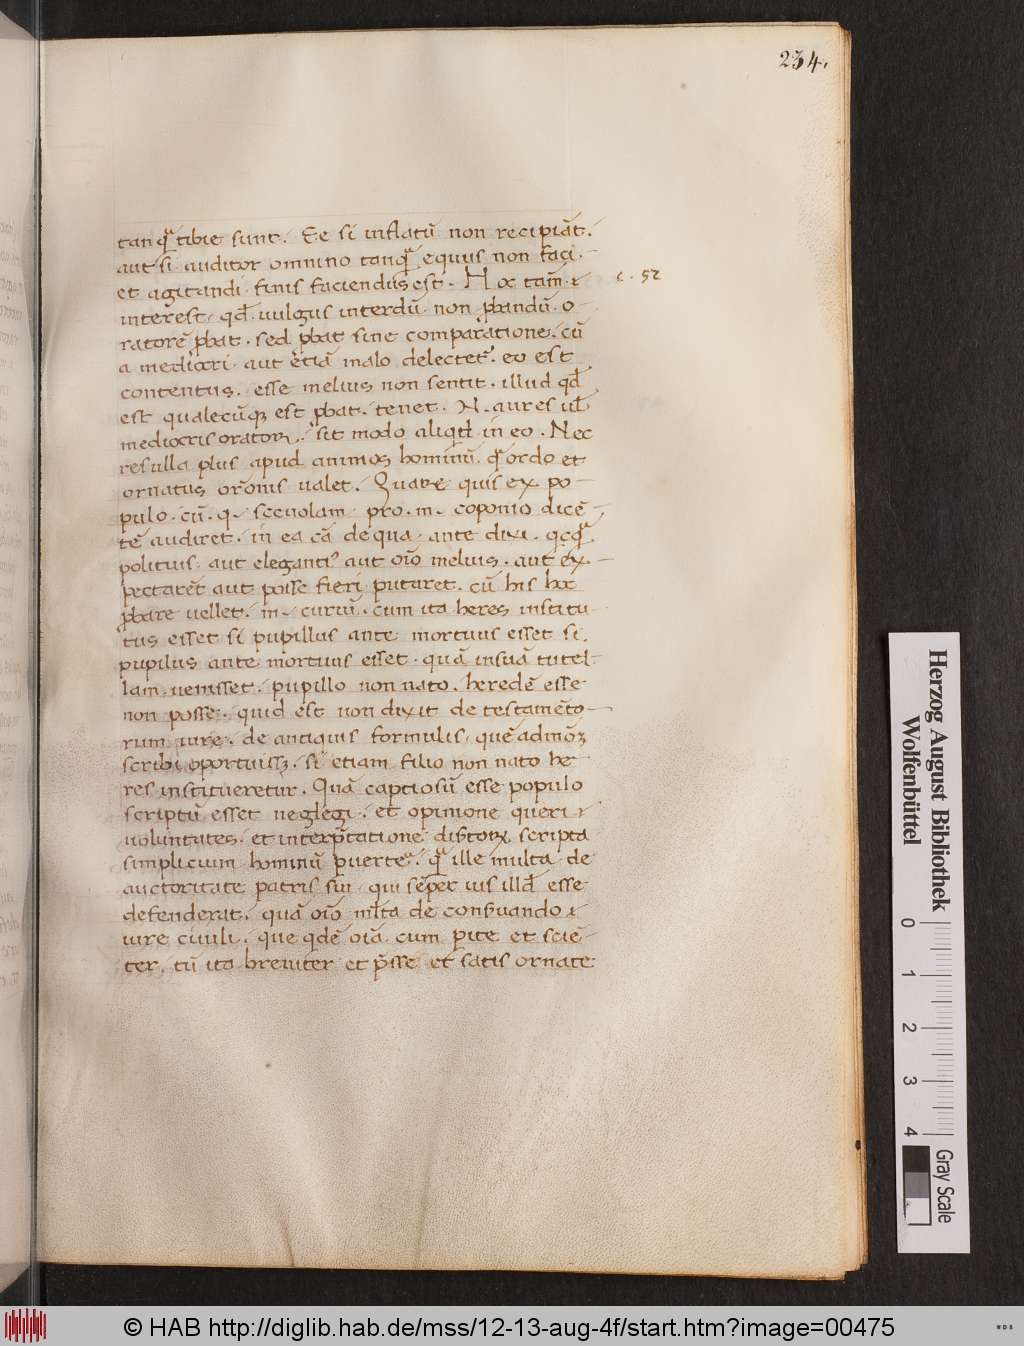 234.
tanq̃ tibie sunt. Et si inflatũ non recipiãt.
aut si auditor omnino tanq̃ equus non faci
et agitandi finis faciendus est. Hoc tam̃ i
c. 52
interest. qd̃ uulgus interdũ non ꝓbandũ o
ratorẽ ꝓbat. sed ꝓbat sine comparatione. cũ
a mediocri aut etiã malo delectet᷑. eo est
contentus. esse melius non sentit. illud qd̃
est qualecũqꝫ est ꝓbat. tenet. N. aures ul̃
mediocris oratoꝝ. sit modo aliqd̃ in eo. Nec
res ulla plus apud animos hominũ. q̃ ordo et
ornatus or̃onis ualet. Quare quis ex po-
pulo. cũ. q. sceuolam pro. m. coponio dicẽ
tẽ audiret. in ea cã de qua ante dixi. qcq̃
politius. aut eleganti᷒ aut oĩo melius. aut ex-
pectaret aut posse fieri putaret. cũ his hoc
ꝓbare uellet. m. curiũ. cum ita heres institu
tus esset si pupillus ante mortuus esset si.
pupilus ante mortuus esset. quã insuã tutel
lam uenisset. pupillo non nato. heredẽ esse
non posse. quid est non dixit de testamẽto-
rum iure. de antiquis formulis, quẽadmoꝫ
scribi oportuissꝫ. si etiam filio non nato he
res institueretur. Quã captiosũ esse populo
scriptũ esset neglegi. et opinione queri
uoluntates. et interp̃tatione disertoꝝ scripta
simplicium hominũ ꝑuerte᷑. q̃ ille multa de
auctoritate patris sui. qui sẽper ius illd̃ esse
defenderat. quã oĩo ml̃ta de conseruando i
iure ciuili. que qdẽ oĩa cum ꝑite et sciẽ-
ter. tũ ita breuiter et p̃sse et satis ornate
Herzog August Bibliothek
Wolfenbüttel
0 1 2 3 4
Gray Scale
© HAB http://diglib.hab.de/mss/12-13-aug-4f/start.htm?image=00475